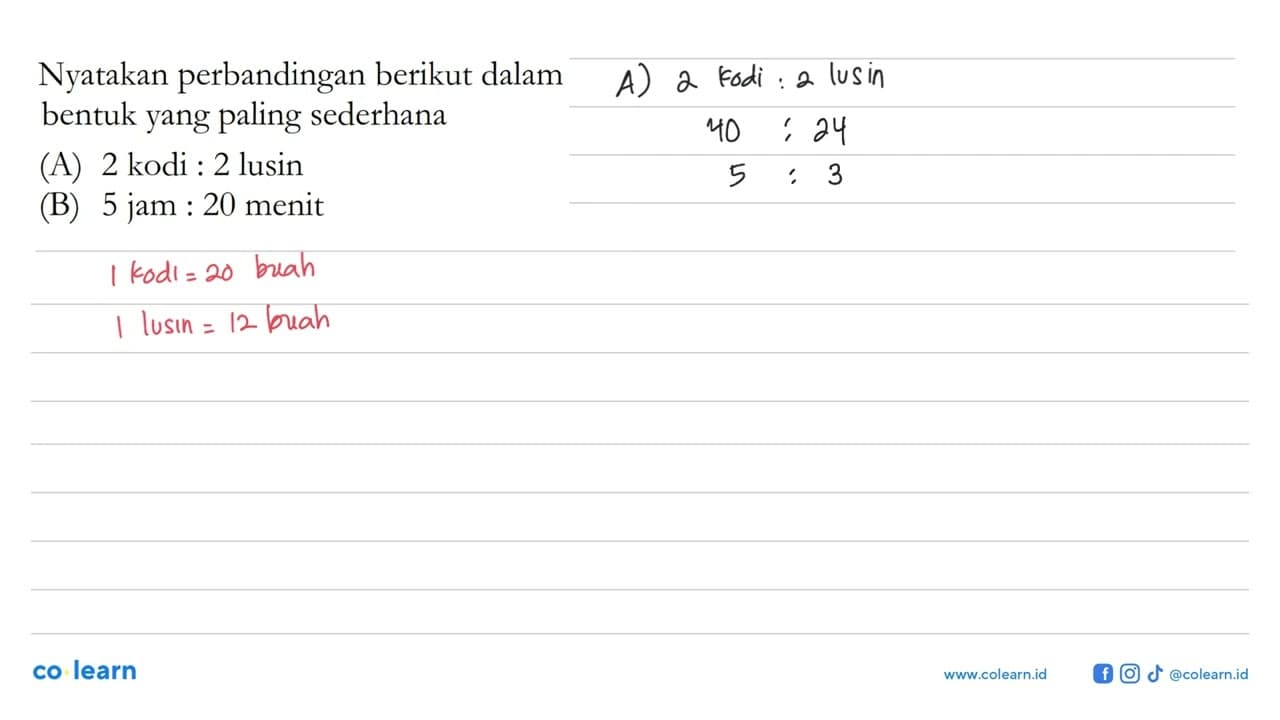 Nyatakan perbandingan berikut dalam
bentuk yang paling sederhana
(A) 2 kodi : 2 lusin
(B) 5 jam : 20 menit
A) 2 kodi : 2 lusin
40 : 24
5 : 3
1 kodi = 20 buah
1 lusin = 12 buah
co learn
www.colearn.id
@colearn.id